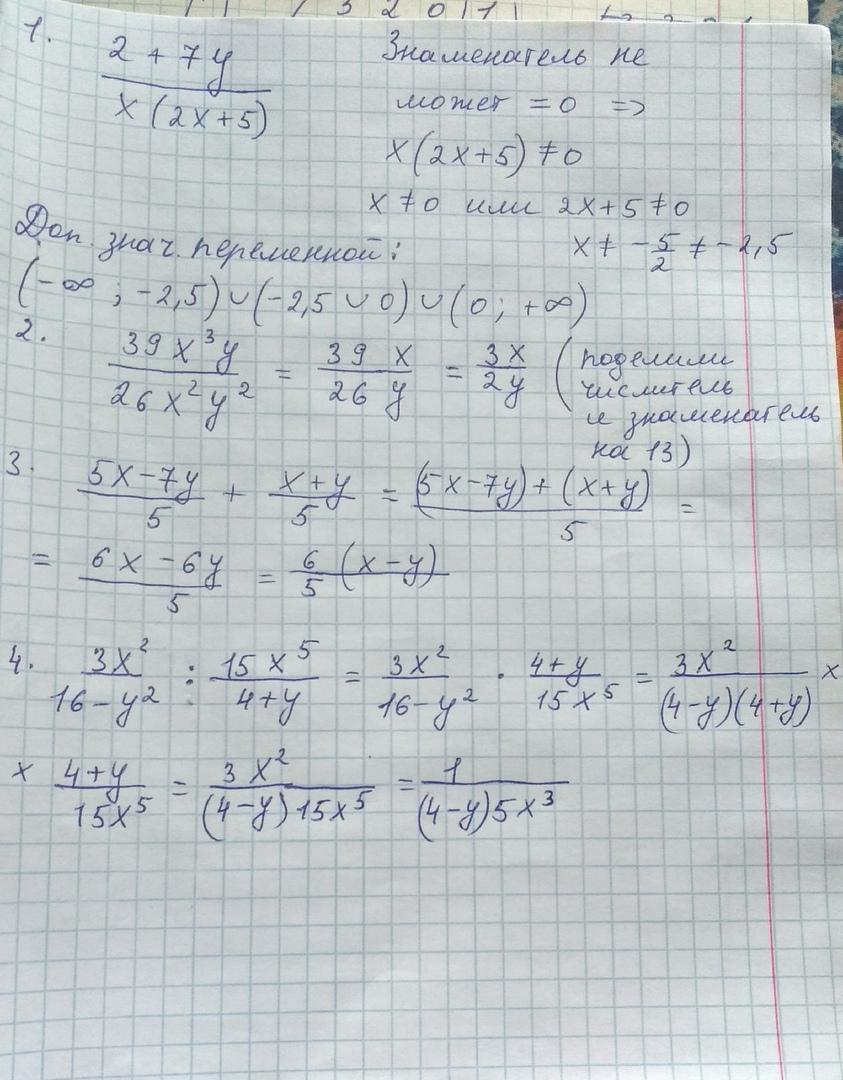 3 2 0 1
1. (2 + 7y)/(x(2x+5)) Знаменатель не
может = 0 =>
x(2x+5) ≠ 0
x ≠ 0 или 2x+5 ≠ 0
Доп. знач. переменной: x ≠ -5/2 ≠ -2,5
(-∞ ; -2,5) ∪ (-2,5 ∪ 0) ∪ (0; +∞)
2. (39x³y)/(26x²y²) = (39 x)/(26 y) = (3x)/(2y) (поделили
числитель
и знаменатель
на 13)
3. (5x-7y)/5 + (x+y)/5 = ((5x-7y)+(x+y))/5 =
= (6x-6y)/5 = 6/5 (x-y)
4. (3x²)/(16-y²) : (15x⁵)/(4+y) = (3x²)/(16-y²) · (4+y)/(15x⁵) = (3x²)/((4-y)(4+y)) ×
× (4+y)/(15x⁵) = (3x²)/((4-y)15x⁵) = 1/((4-y)5x³)